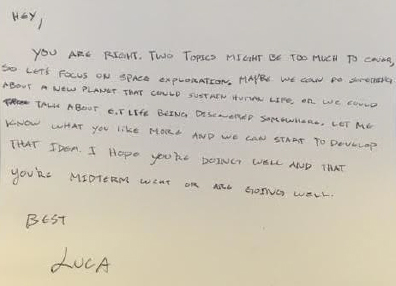 HEY,
YOU ARE RIGHT. TWO TOPICS MIGHT BE TOO MUCH TO COVER,
SO LETS FOCUS ON SPACE EXPLORATION, MAYBE WE COULD DO SOMETHING
ABOUT A NEW PLANET THAT COULD SUSTAIN HUMAN LIFE OR WE COULD
TALK ABOUT E.T LIFE BEING DISCOVERED SOMEWHERE. LET ME
KNOW WHAT YOU LIKE MORE AND WE CAN START TO DEVELOP
THAT IDEA. I HOPE YOU'RE DOING WELL AND THAT
YOU'RE MIDTERM WENT OR ARE GOING WELL.
BEST
LUCA